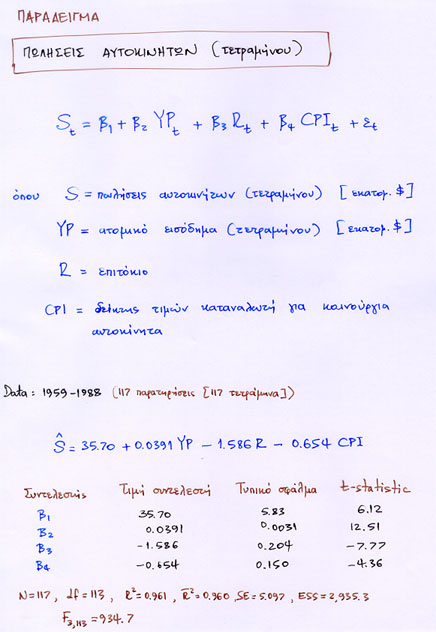 ΠΑΡΑΔΕΙΓΜΑ
ΠΩΛΗΣΕΙΣ ΑΥΤΟΚΙΝΗΤΩΝ (τετραμήνου)
S_t = β₁ + β₂ YP_t + β₃ R_t + β₄ CPI_t + ε_t
όπου S = πωλήσεις αυτοκινήτων (τετραμήνου) [εκατομ. $]
YP = ατομικό εισόδημα (τετραμήνου) [εκατομ. $]
R = επιτόκιο
CPI = δείκτης τιμών καταναλωτή για καινούργια
αυτοκίνητα
Data: 1959-1988 (117 παρατηρήσεις [117 τετράμηνα])
Ŝ = 35.70 + 0.0391 YP - 1.586 R - 0.654 CPI
Συντελεστής Τιμή συντελεστή Τυπικό σφάλμα t-statistic
β₁ 35.70 5.83 6.12
β₂ 0.0391 0.0031 12.51
β₃ -1.586 0.204 -7.77
β₄ -0.654 0.150 -4.36
N=117, df=113, R²=0.961, R̄²=0.960, SE=5.097, ESS=2,935.3
F₃,₁₁₃ = 934.7